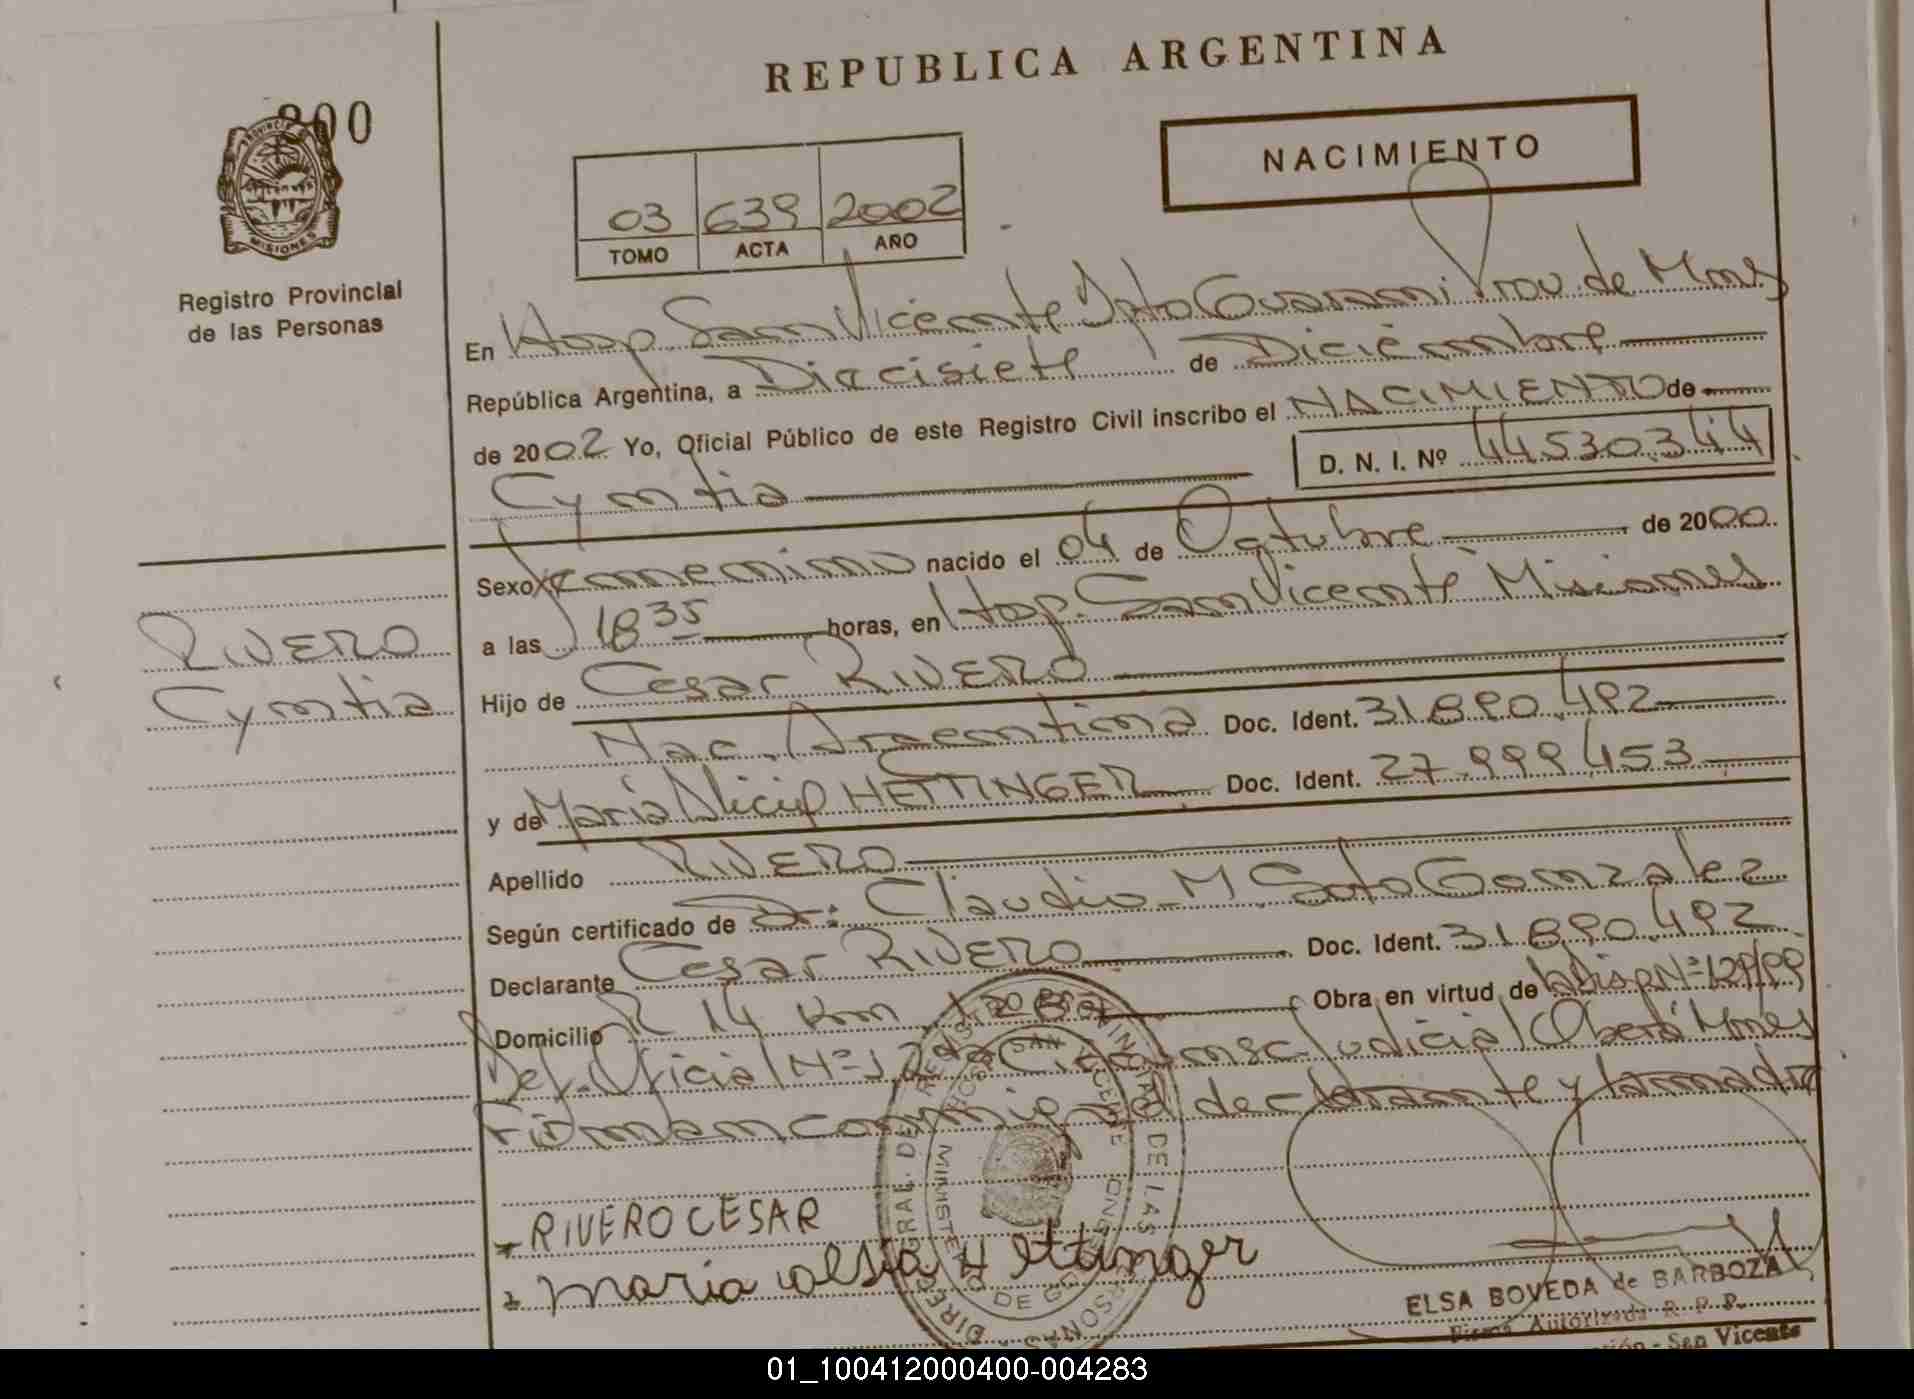 REPUBLICA ARGENTINA
NACIMIENTO
03 639 2002
TOMO ACTA AÑO
PROVINCIA
MISIONES
Registro Provincial
de las Personas
En Hosp San Vicente Dpto Guarani Prov. de Mnes
República Argentina, a Diecisiete de Diciembre
de 2002 Yo, Oficial Público de este Registro Civil inscribo el NACIMIENTO de
Cyntia
D. N. I. Nº 44530344
Sexo Femenino nacido el 04 de Octubre de 2000
a las 18 35 horas, en Hosp. San Vicente Misiones
RIVERO
Cyntia
Hijo de Cesar RIVERO
Nac. Argentina Doc. Ident. 31.890.492
y de Maria Alicia HETTINGER Doc. Ident. 27.999.453
Apellido RIVERO
Según certificado de Dr: Claudio M. Soto Gonzalez
Declarante Cesar RIVERO Doc. Ident. 31.890.492
Domicilio R 14 Km Obra en virtud de la Disp Nº 129/99
Def. Oficial Nº 1 Judicial Oberá Mnes
Firman conmigo el declarante y la madre
RIVERO CESAR
maria Hettinger
DE LAS
SAN
ELSA BOVEDA de BARBOZA
Firma Autorizada R. P. P.
San Vicente
01_100412000400-004283